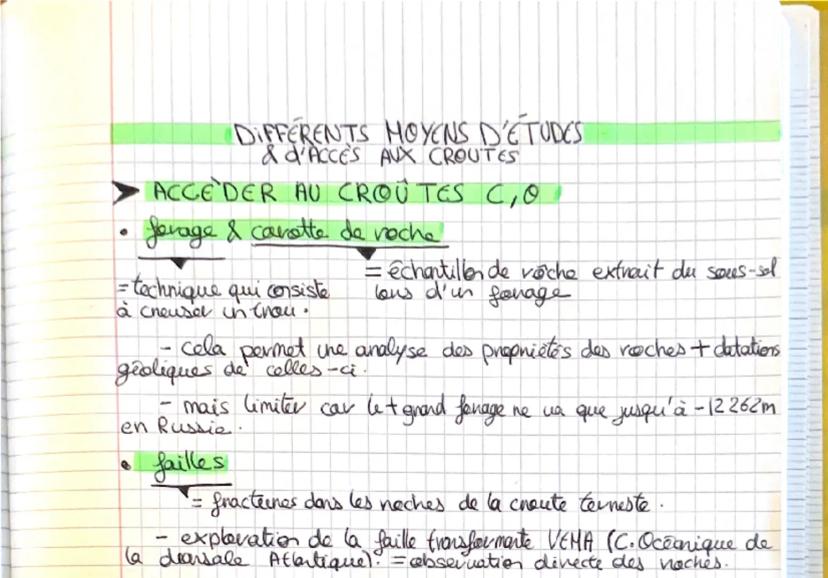 DIFFÉRENTS MOYENS D'ÉTUDES
& d'ACCÈS AUX CROUTES
➤ ACCÈDER AU CROÛTES C, O
• forage & carotte de roche
= échantillon de roche extrait du sous-sol
lors d'un forage
= technique qui consiste
à creuser un trou.
- cela permet une analyse des propriétés des roches + datations
géoliques de celles-ci.
- mais limiter car le + grand forage ne va que jusqu'à -12 262m
en Russie.
• failles
= fractures dans les roches de la croute terrestre.
- exploration de la faille transformante VEMA (C. Océanique de
la dorsale Atlantique). = observation directe des roches.